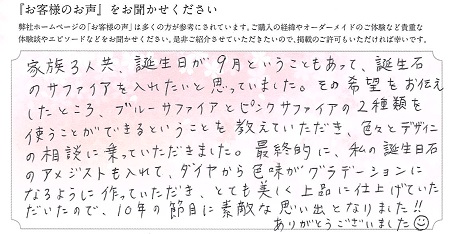 『お客様のお声』をお聞かせください
弊社ホームページの「お客様のお声」は多くの方が参考にされています。ご購入の経緯やオーダーメイドのご体験など貴重な
体験談やエピソードなどをお聞かせください。是非ご紹介させていただきたいので、掲載のご許可もいただければ幸いです。
家族3人共、誕生日が9月ということもあって、誕生石
のサファイアを入れたいと思っていました。その希望をお伝え
したところ、ブルーサファイアとピンクサファイアの2種類を
使うことができるということを教えていただき、色々とデザイン
の相談に乗っていただきました。最終的に、私の誕生日石
のアメジストも入れて、ダイヤから色味がグラデーションに
なるように作っていただき、とても美しく上品に仕上げていた
だいたので、10年の節目に素敵な思い出となりました!!
ありがとうございました